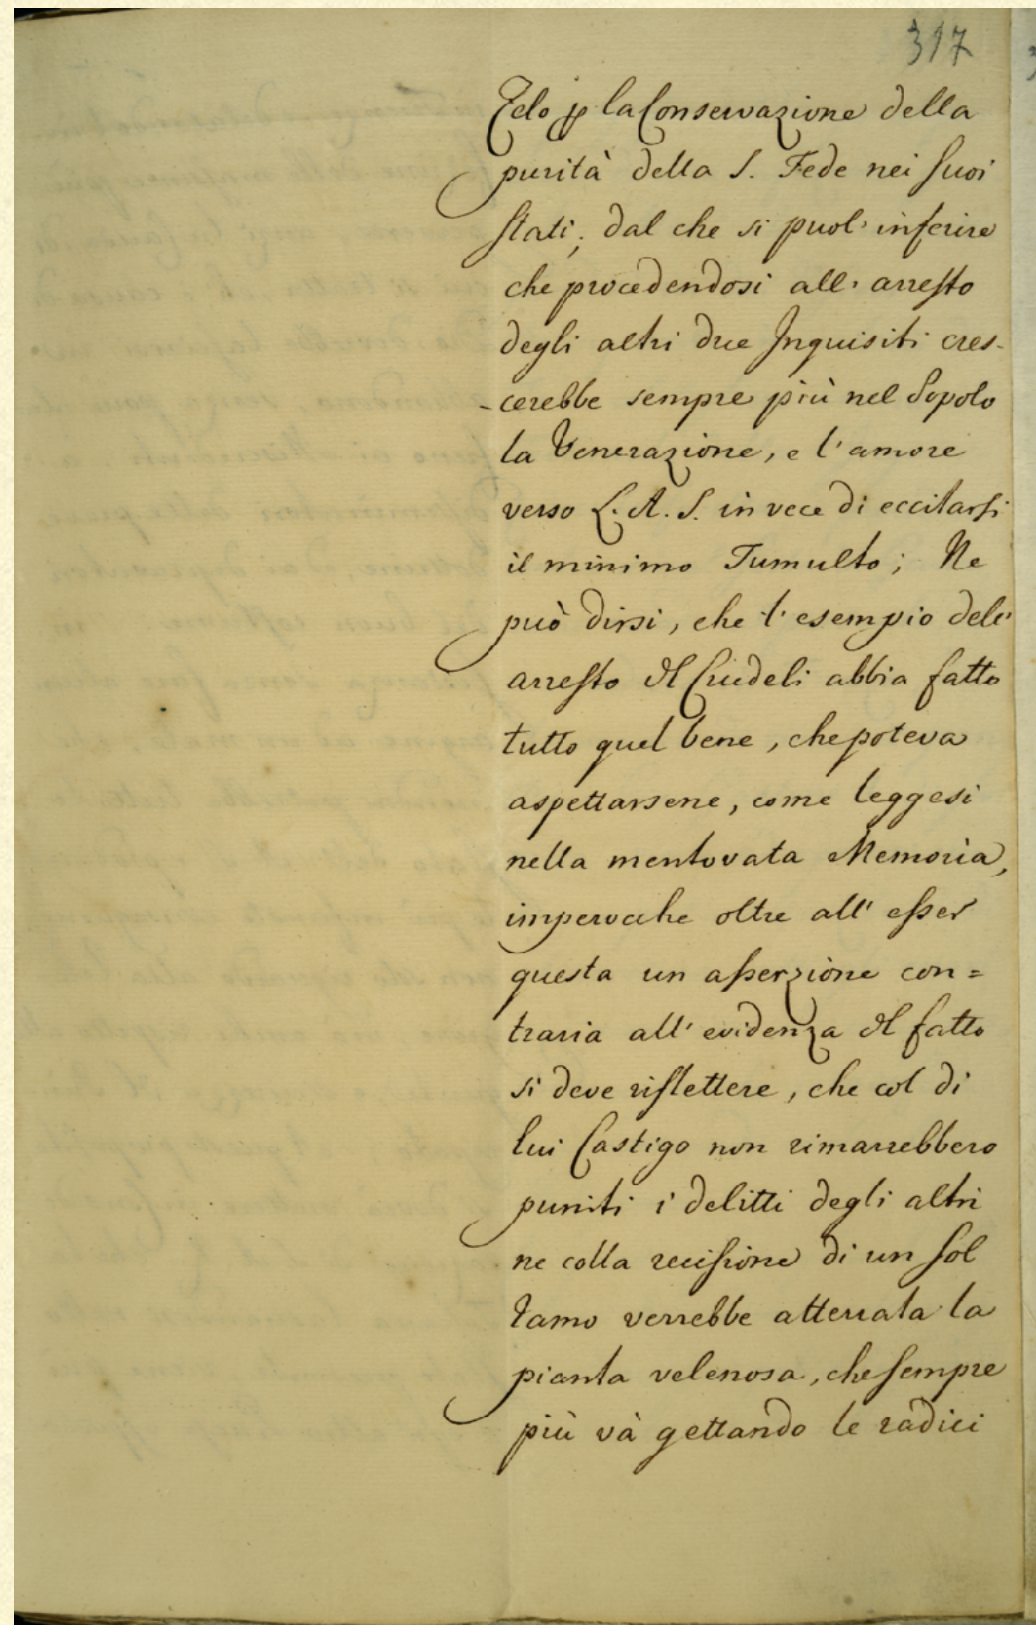 317
Zelo p la Conservazione della
purità della S. Fede nei suoi
stati; dal che si puol' inferire
che procedendosi all' arresto
degli altri due Inquisiti cres-
-cerebbe sempre più nel Popolo
la Venerazione, e l' amore
verso L. A. S. in vece di eccitarsi
il minimo Tumulto; Ne
può dirsi, che l' esempio dell'
arresto del Crudeli abbia fatto
tutto quel bene, che poteva
aspettarsene, come leggesi
nella mentovata Memoria,
imperoche oltre all' esser
questa un asserzione con=
traria all' evidenza del fatto
si deve riflettere, che col di
lui Castigo non rimarrebbero
puniti i delitti degli altri
ne colla recisione di un sol
Ramo verrebbe atterrata la
pianta velenosa, che sempre
più và gettando le radici